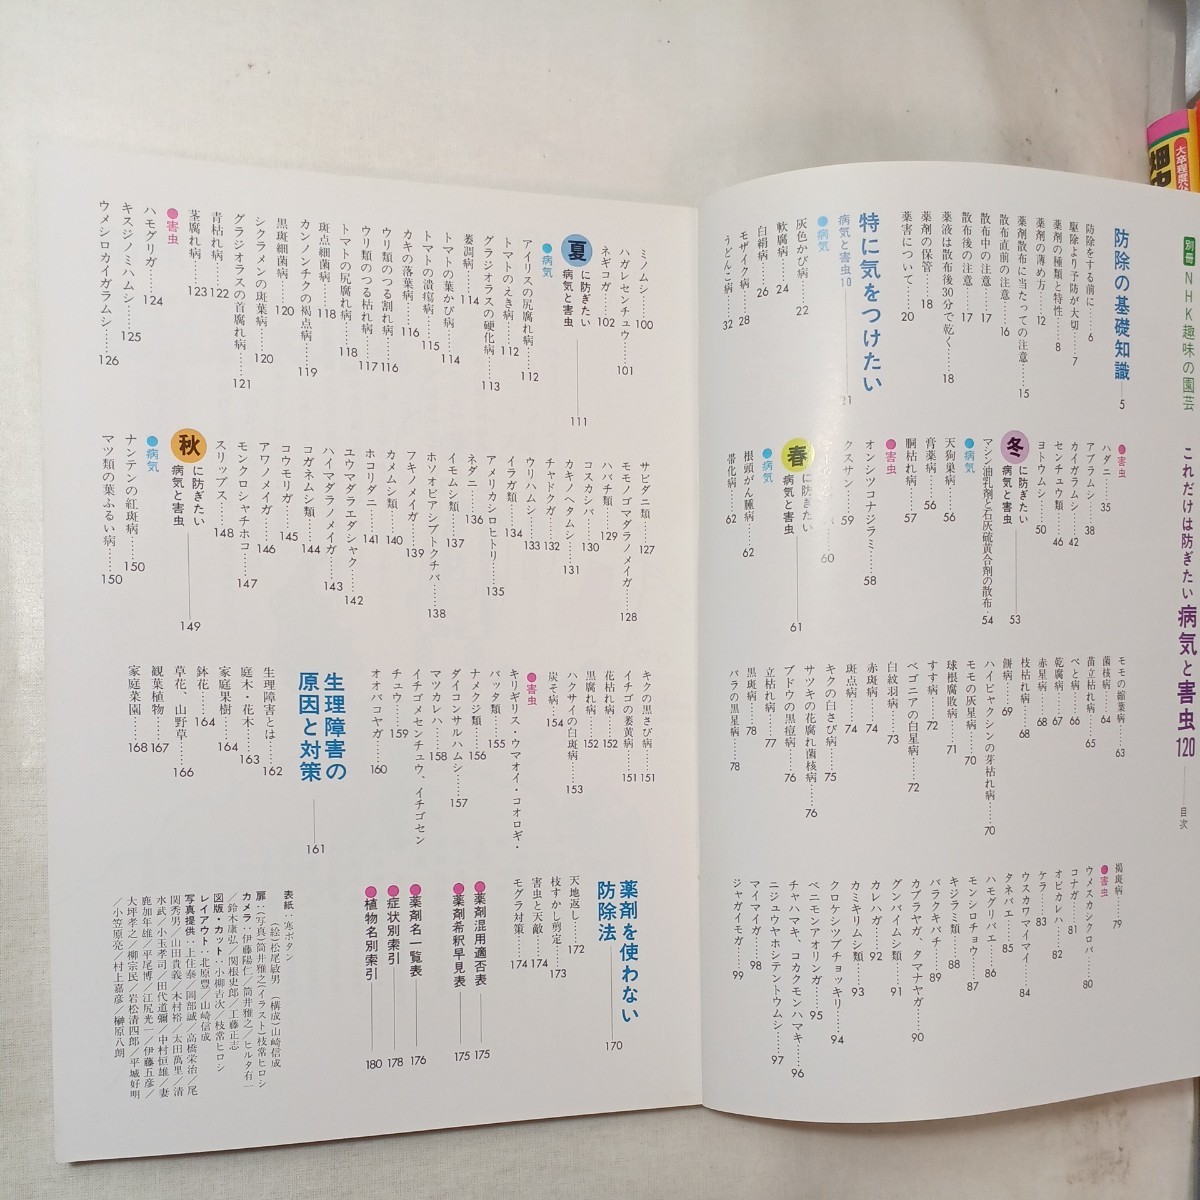 別冊NHK趣味の園芸
これだけは防ぎたい病気と害虫120
目次
防除の基礎知識 5
防除をする前に……6
駆除より予防が大切……7
薬剤の種類と特性……8
薬剤の薄め方……12
薬剤散布に当たっての注意……15
散布直前の注意……16
散布中の注意……17
散布後の注意……17
薬液は散布後30分で乾く……18
薬剤の保管……18
薬害について……20
特に気をつけたい
病気と害虫10 21
●病気
灰色かび病……22
軟腐病……24
白絹病……26
モザイク病……28
うどんこ病……32
●害虫
ハダニ……35
アブラムシ……38
カイガラムシ……42
センチュウ類……46
ヨトウムシ……50
冬に防ぎたい
病気と害虫 53
マシン油乳剤と石灰硫黄合剤の散布・54
●病気
天狗巣病……56
膏薬病……56
胴枯れ病……57
●害虫
オンシツコナジラミ……58
クスサン……59
60
春に防ぎたい
病気と害虫 61
●病気
根頭がん腫病……62
帯化病……62
モモの縮葉病……63
菌核病……64
苗立枯れ病……65
べと病……66
乾腐病……67
赤星病……67
枝枯れ病……68
餅病……69
ハイビャクシンの芽枯れ病……70
モモの灰星病……70
球根腐敗病……71
すす病……72
ベゴニアの白星病……72
白紋羽病……73
赤斑病……74
斑点病……74
キクの白さび病……75
サツキの花腐れ菌核病……76
ブドウの黒痘病……76
立枯れ病……77
黒斑病……78
バラの黒星病……78
褐斑病……79
●害虫
ウメスカシクロバ……80
コナガ……81
オビカレハ……82
ケラ……83
ウスカワマイマイ……84
タネバエ……85
ハモグリバエ……86
モンシロチョウ……87
キジラミ類……88
バラクキバチ……89
カブラヤガ、タマナヤガ……90
グンバイムシ類……91
カレハガ……92
カミキリムシ類……93
クロケシツブチョッキリ……94
ベニモンアオリンガ……95
チャハマキ、コカクモンハマキ……96
ニジュウヤホシテントウムシ……97
マイマイガ……98
ジャガイモガ……99
ミノムシ……100
ハガレセンチュウ……101
ネギコガ……102
夏に防ぎたい
病気と害虫 111
●病気
アイリスの尻腐れ病……112
トマトのえき病……112
グラジオラスの硬化病……113
萎凋病……114
トマトの葉かび病……114
トマトの潰瘍病……115
カキの落葉病……116
ウリ類のつる割れ病……116
ウリ類のつる枯れ病……117
トマトの尻腐れ病……118
斑点細菌病……118
カンノンチクの褐点病……119
黒斑細菌病……120
シクラメンの斑葉病……120
グラジオラスの首腐れ病……121
青枯れ病……122
茎腐れ病……123
●害虫
ハモグリガ……124
キスジノミハムシ……125
ウメシロカイガラムシ……126
サビダニ類……127
モモノゴマダラノメイガ……128
ハバチ類……129
コスカシバ……130
カキノヘタムシ……131
チャドクガ……132
ウリハムシ……133
イラガ類……134
アメリカシロヒトリ……135
ネダニ……136
イモムシ類……137
ホソオビアシブトクチバ……138
フキノメイガ……139
カメムシ類……140
ホコリダニ……141
ユウマダラエダシャク……142
ハイマダラノメイガ……143
コガネムシ類……144
コウモリガ……145
アワノメイガ……146
モンクロシャチホコ……147
スリップス……148
秋に防ぎたい
病気と害虫 149
●病気
ナンテンの紅斑病……150
マツ類の葉ふるい病……150
キクの黒さび病……151
イチゴの萎黄病……151
花枯れ病……152
黒腐れ病……152
ハクサイの白斑病……153
炭そ病……154
●害虫
キリギリス・ウマオイ・コオロギ・
バッタ類……155
ナメクジ類……156
ダイコンサルハムシ……157
マツカレハ……158
イチゴメセンチュウ、イチゴセン
チュウ……159
オオバコヤガ……160
生理障害の
原因と対策 161
生理障害とは……162
庭木・花木……163
家庭果樹……164
鉢花……164
草花、山野草……166
観葉植物……167
家庭菜園……168
薬剤を使わない
防除法 170
天地返し……172
枝すかし剪定……173
害虫と天敵……174
モグラ対策……174
●薬剤混用適否表 175
●薬剤希釈早見表 175
●薬剤名一覧表 176
●症状別索引 178
●植物名別索引 180
表紙：寒ボタン
（絵）松尾敏男　（構成）山崎信成
扉：（写真）筒井雅之（イラスト）枝常ヒロシ
カメラ：伊藤陽仁／筒井雅之／ヒルタ有一
／鈴木康弘／関根史郎／工藤正志
図版・カット：小柳吉次／枝常ヒロシ
レイアウト：北原豊／山崎信成
写真提供：上住泰／岡部誠／高橋栄治／尾
関秀男／山田貴義／木村裕／太田萬里／清
水武／小玉孝司／田代道彌／中村恒雄／妻
鹿加年雄／平尾博／江尻光一／伊藤五彦／
大坪孝之／柳宗民／岩松清四郎／平城好明
／小笠原亮／村上嘉彦／榊原八朗
大卒程度